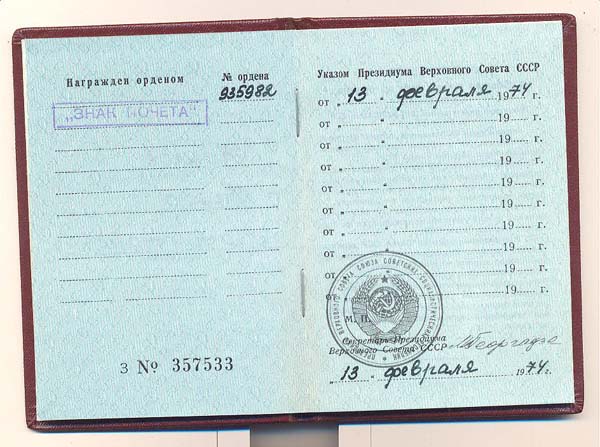 Награжден орденом
№ ордена
„ЗНАК ПОЧЕТА"
935982
З № 357533
Указом Президиума Верховного Совета СССР
от „ 13 " февраля 1974 г.
от „ " 19 г.
от „ " 19 г.
от „ " 19 г.
от „ " 19 г.
от „ " 19 г.
от „ " 19 г.
от „ " 19 г.
от „ " 19 г.
от „ " 19 г.
М. П.
Секретарь Президиума
Верховного Совета СССР
М Георгадзе
„ 13 " февраля 1974 г.